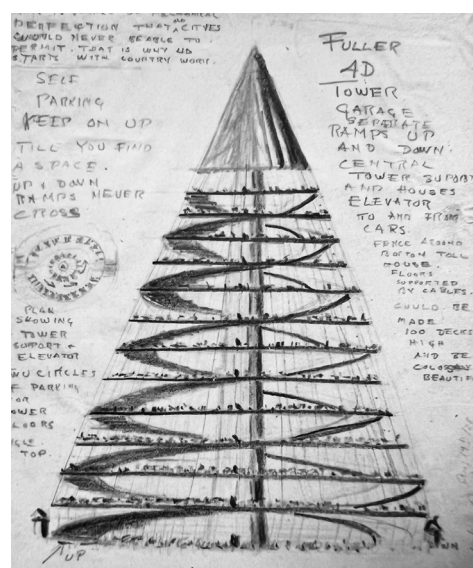 PERFECTION THAT CITYES
SHOULD NEVER BE ABLE TO
PERMIT. THAT IS WHY WE
STARTS WITH COUNTRY WORK.
SELF
PARKING
KEEP ON UP
TILL YOU FIND
A SPACE.
UP & DOWN
RAMPS NEVER
CROSS
PLAN
SHOWING
TOWER
SUPPORT +
ELEVATOR
CIRCLES
PARKING
TOP.
UP
FULLER
4D
TOWER
GARAGE
SEPARATE
RAMPS UP
AND DOWN
CENTRAL
TOWER SUPPORT
AND HOUSES
ELEVATOR
TO AND FROM
CARS.
FENCE AROUND
BOTTOM TOLL
HOUSE.
FLOORS
SUPPORTED
BY CABLES.
COULD BE
MADE
100 DECKS
HIGH
AND BE